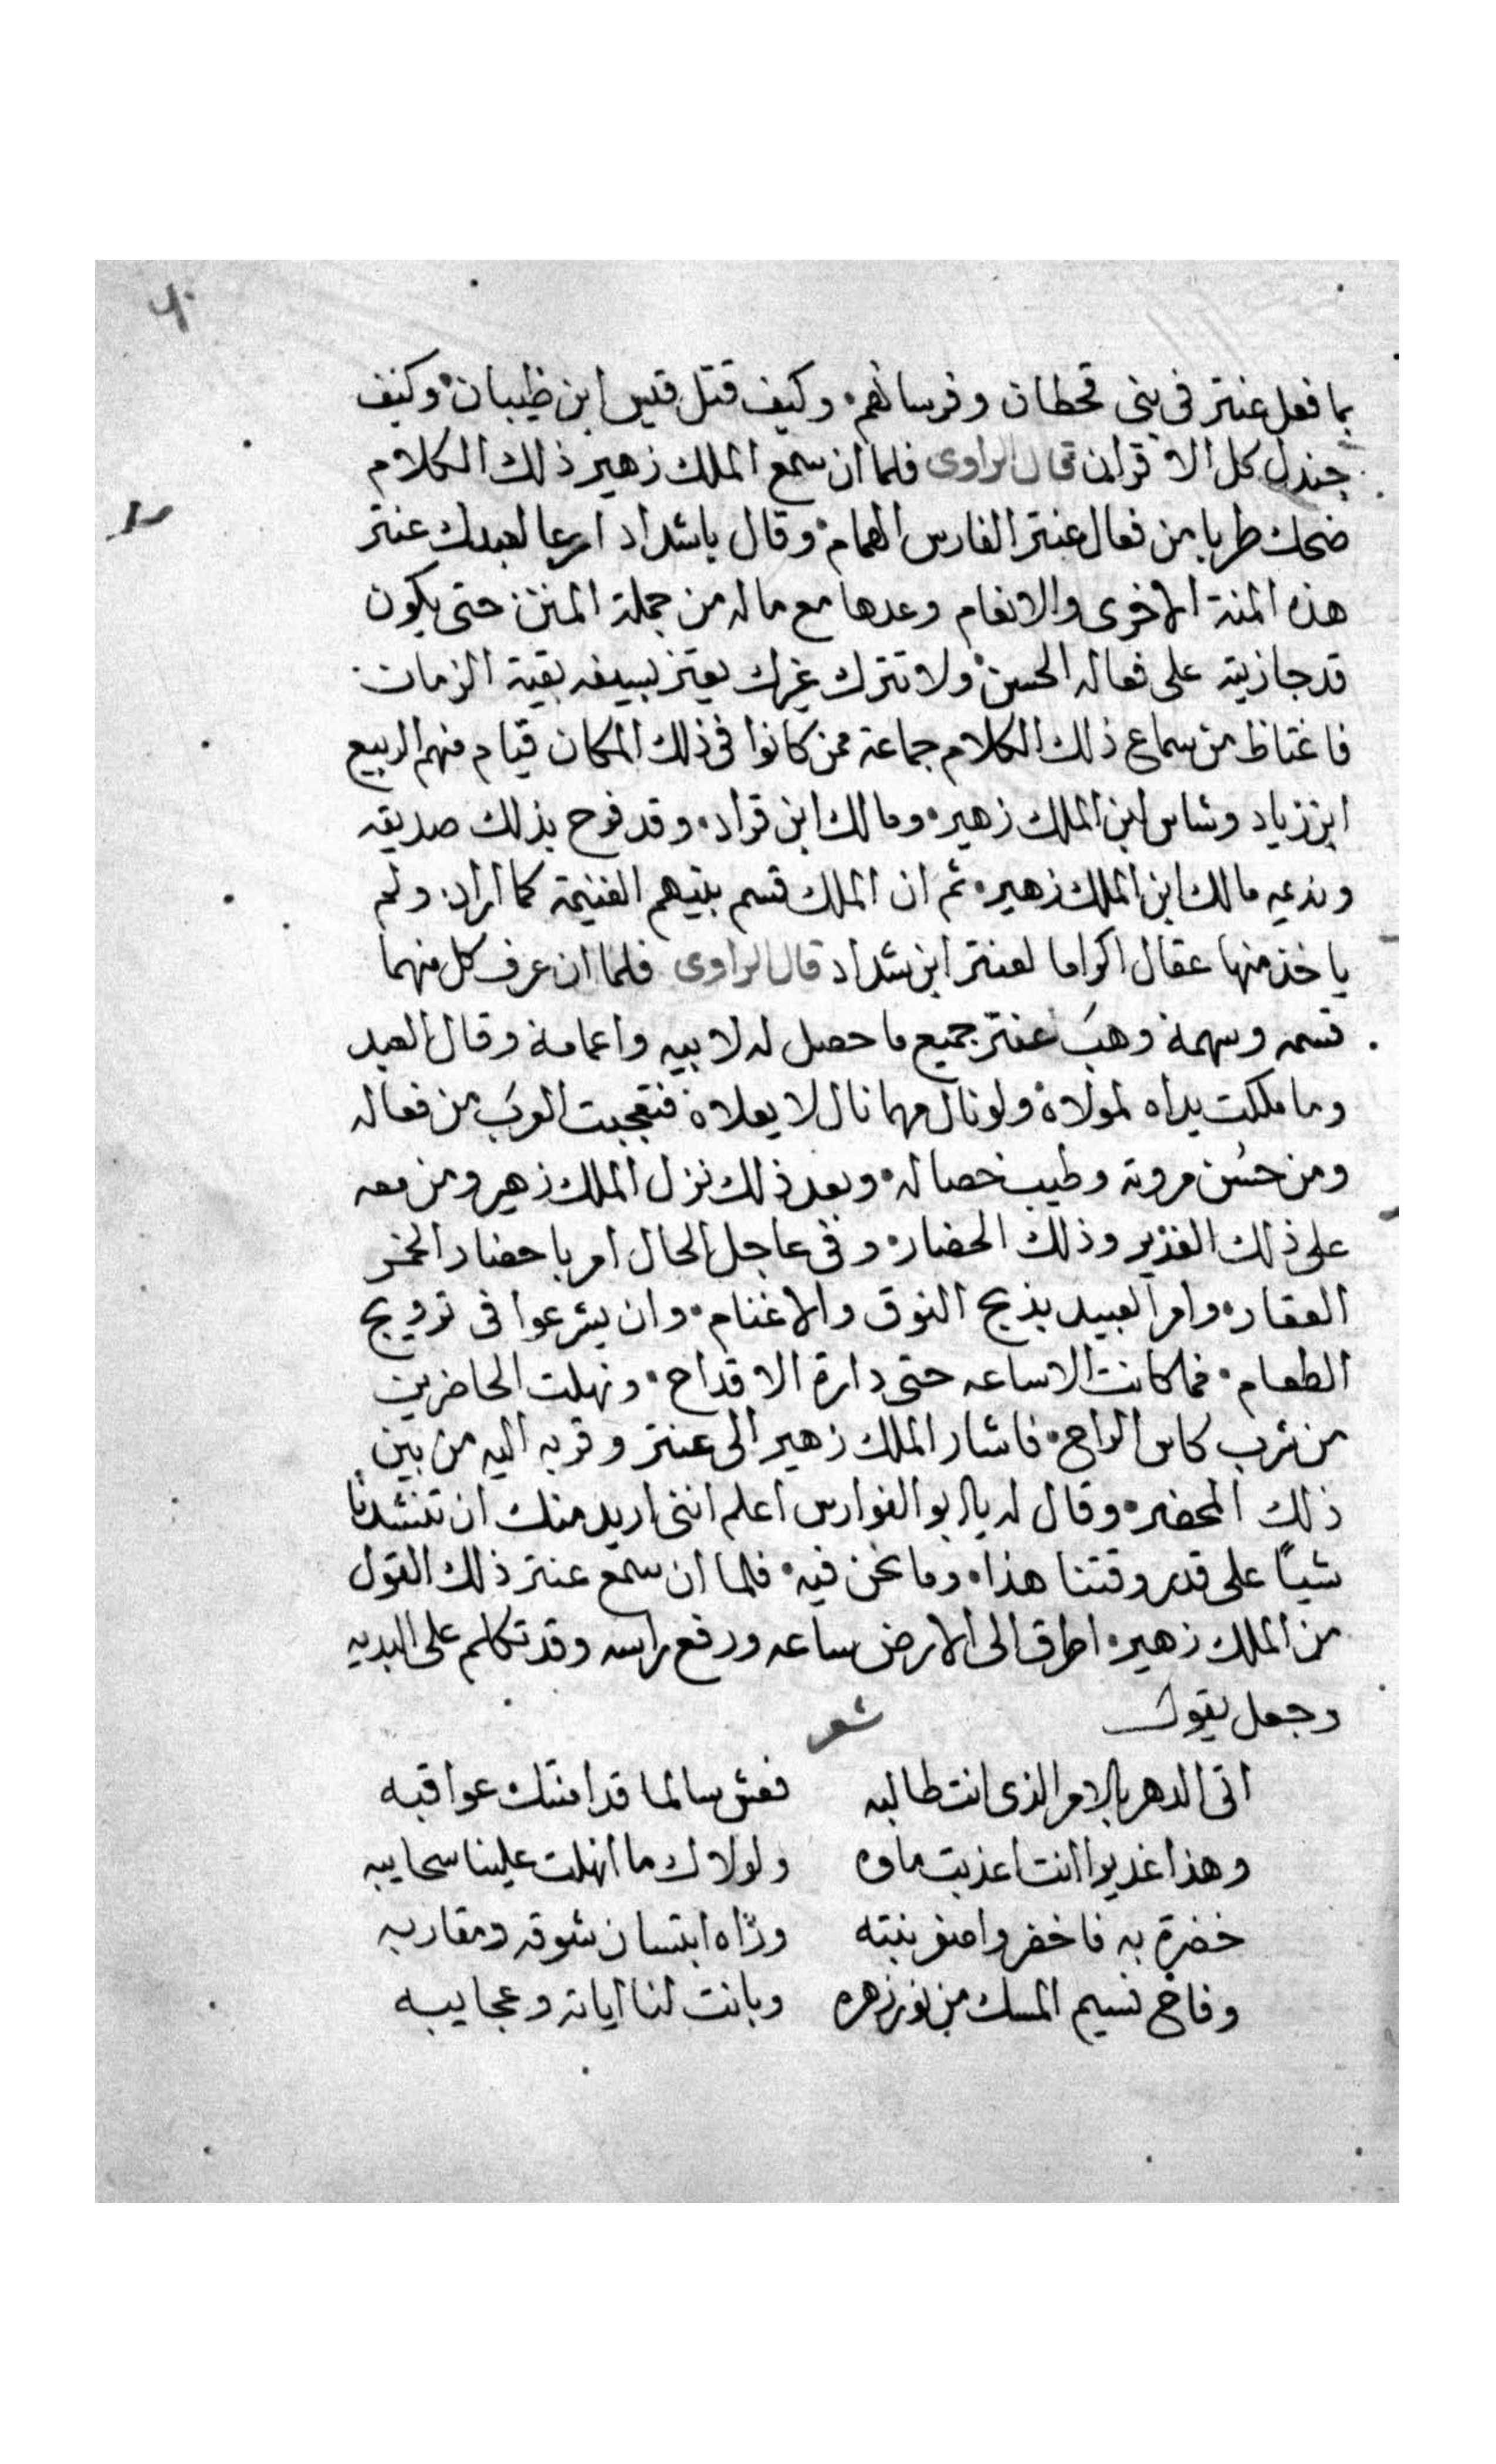 بما فعل عنتر فى بنى قحطان وفرسانهم وكيف قتل قيس ابن ظبيان وكيف
جندل كل الاقران قال الراوى فلما ان سمع الملك زهير ذلك الكلام
ضحك طربا من فعال عنتر الفارس الهمام وقال ياشداد ارعا لعبدك عنتر
هذه المنة الاخرى والانعام وعدها مع ماله من جملة المنن حتى يكون
قد جازيته على فعاله الحسن ولا تترك غيرك يعتز بسيفه بقية الزمان
فاغتاظ من سماع ذلك الكلام جماعة ممن كانوا فى ذلك المكان قيام منهم الربيع
ابن زياد وشاس ابن الملك زهير ومالك ابن قراد وقد فرح بذلك صديقه
ونديمه مالك ابن الملك زهير ثم ان الملك قسم بينهم الغنيمة كما اراد ولم
ياخذ منها عقال اكراما لعنتر ابن شداد قال الراوى فلما ان عرف كل منهما
قسمه وسهمة وهب عنتر جميع ما حصل له لابيه واعمامة وقال العبد
وما ملكت يداه لمولاة ولو نال مهما نال لا يعلاة فتعجبت العرب من فعاله
ومن حسن مروته وطيب خصاله وبعد ذلك نزل الملك زهير ومن معه
على ذلك الغدير وذلك الحضار وفى عاجل الحال امر باحضار الخمر
العقار وامر العبيد بذبح النوق والاغنام وان يشرعوا فى ترويج
الطعام فما كانت الا ساعه حتى دارة الاقداح ونهلت الحاضرين
من شرب كاس الراح فاشار الملك زهير الى عنتر وقربه اليه من بين
ذلك المحضر وقال له يا ابو الفوارس اعلم اننى اريد منك ان تنشدنا
شيئا على قدر وقتنا هذا وما نحن فيه فلما ان سمع عنتر ذلك القول
من الملك زهير اطرق الى الارض ساعه ورفع راسه وقد تكلم على البديه
وجعل يقول شعر
اتى الدهر بالامر الذى انت طالبه فعش سالما قد امنتك عواقبه
وهذا غديرا انت اعذبت ماوه ولولاك ما انهلت علينا سحايبه
خضرة به فاخضر نبته شوقه ومقاربه
وفاح نسيم المسك من نور زهره وبانت لنا اياته وعجايبه